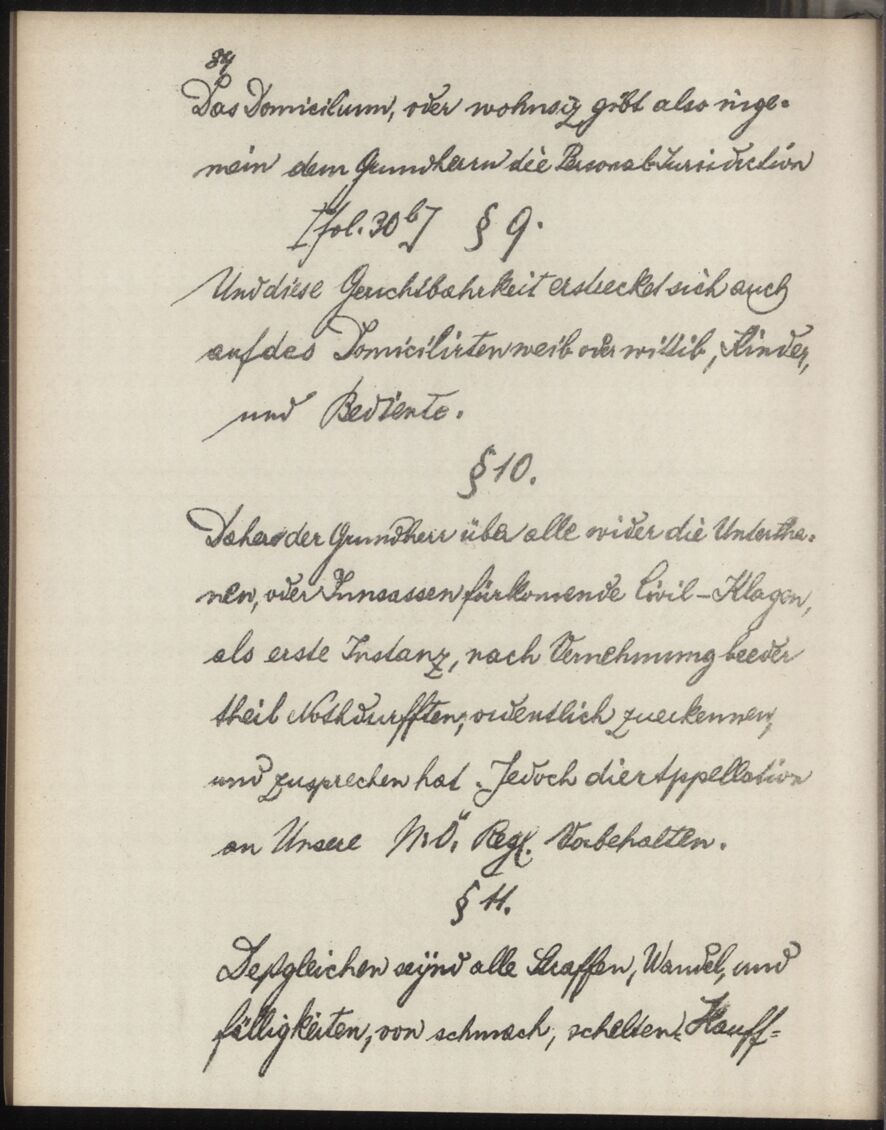 84
Das Domicilium, oder wohnsiz gibt also inge-
mein dem Grundherrn die Personal Jurisdiction
[fol. 30 b] § 9.
Und diese Gerichtbahrkeit erstrecket sich auch
auf des Domicilirten weib oder wittib, Kinder,
und Bediente.
§ 10.
Daher der Grundherr über alle wider die Untertha-
nen, oder Innsassen fürkomende Civil-Klagen,
als erste Instanz, nach Vernehmung beeder
theil Nothdurfften, ordentlich zuerkennen,
und zusprechen hat. Jedoch die Appellation
an Unsere N:Ö. Regg. Vorbehalten.
§ 11.
Deßgleichen seÿnd alle Straffen, Wandel, und
fälligkeiten, von schmach, schelten, Rauff-